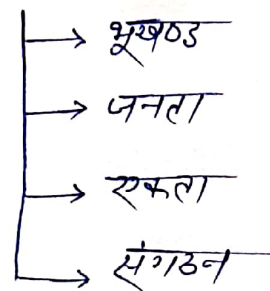 भूखण्ड
जनता
एकता
संगठन